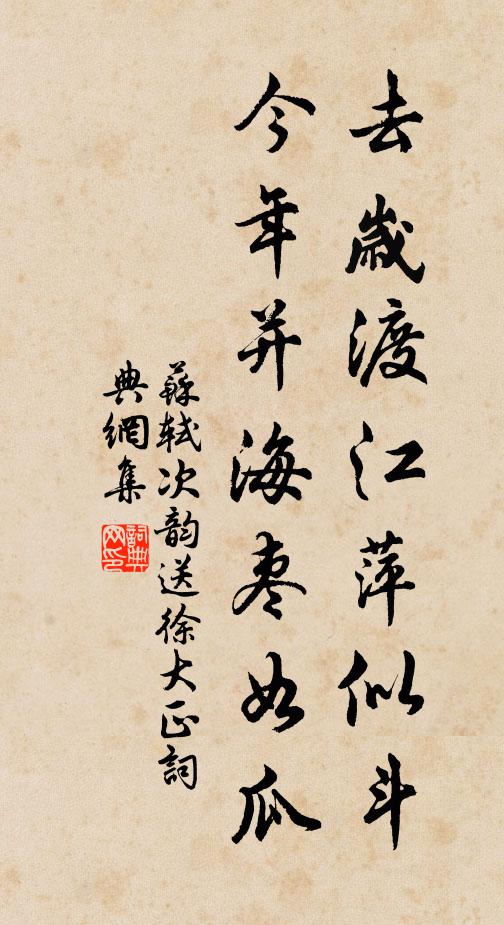 去歲渡江萍似斗
今年并海棗如瓜
蘇軾次韵送徐大正詞
典網集
詞典網印